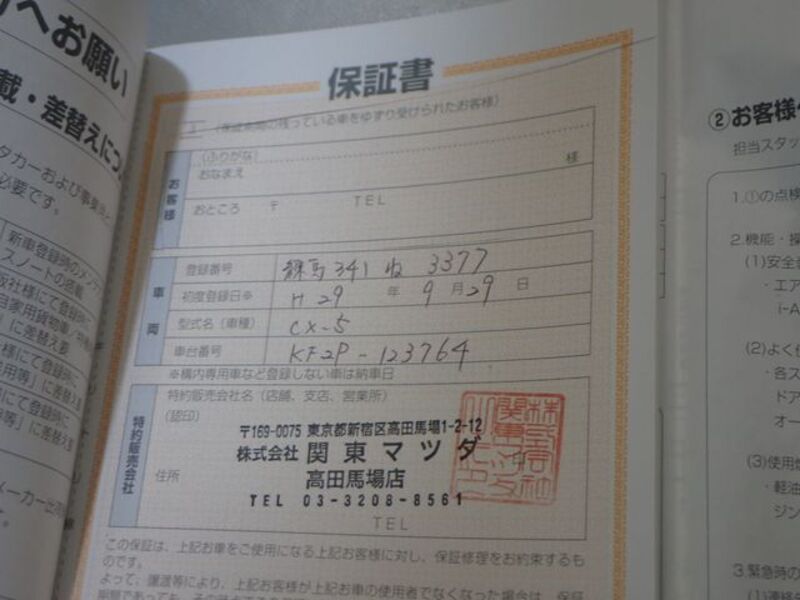 へお願い
載・差替えにつ
タカーおよび事業
必要です。
新車登録時のメンテ
スノートの搭載
販社様にて登録時に
自家用貨物車
に差替え要
様にて登録時に
用等」に差替え要
にて登録時に
等」に差替え要
メーカー出荷
保証書
(保証期間の残っている車をゆずり受けられたお客様)
お客様
(ふりがな)
おなまえ
様
おところ 〒 TEL
車両
登録番号 練馬 341 ね 3377
初度登録日※ H 29 年 9 月 29 日
型式名(車種) CX-5
車台番号 KF2P-123764
※構内専用車など登録しない車は納車日
特約販売会社
特約販売会社名(店舗、支店、営業所)
(認印)
〒169-0075 東京都新宿区高田馬場1-2-12
株式会社 関東マツダ
住所
高田馬場店
TEL 03-3208-8561
TEL
この保証は、上記お車をご使用になる上記お客様に対し、保証修理をお約束するも
のです。
よって、譲渡等により、上記お客様が上記お車の使用者でなくなった場合は、保証
②お客様
担当スタッ
1.①の点検
2.機能・操
(1)安全装
・エア
i-A
(2)よく
・各ス
ドア
オー
(3)使用
・軽油
ジン
3.緊急時の
(1)連絡